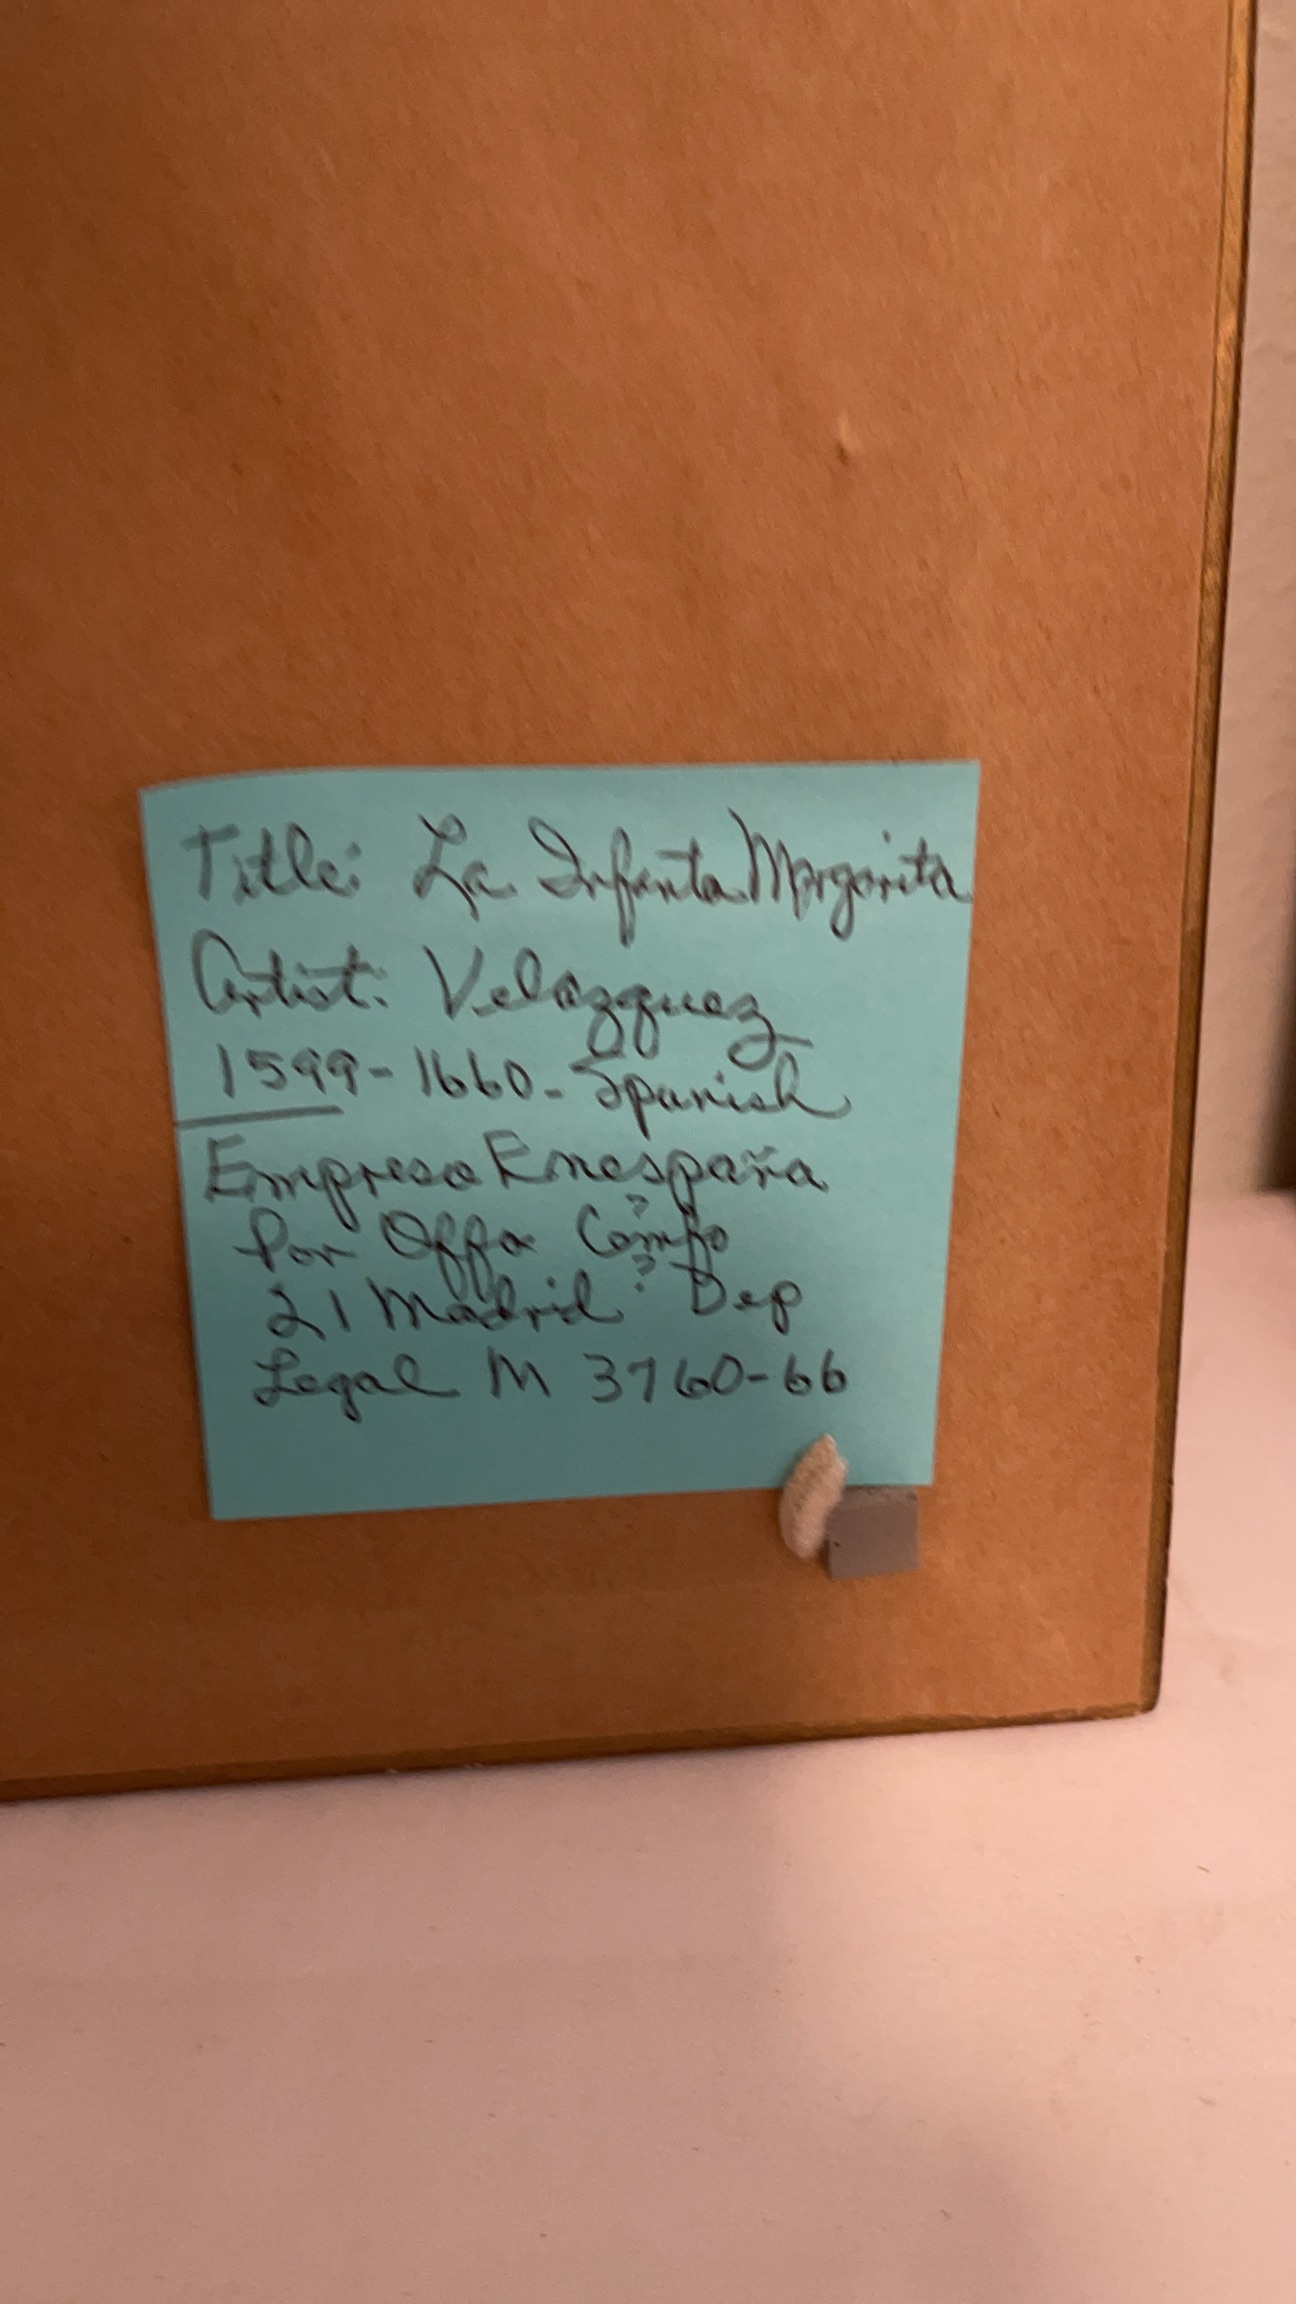 Title: La Infanta Margarita
Artist: Velazquez
1599-1660-Spanish
Empresa Enespaña
? ?
Por Offo Compo
21 Madrid ? Dep
Legal M 3760-66